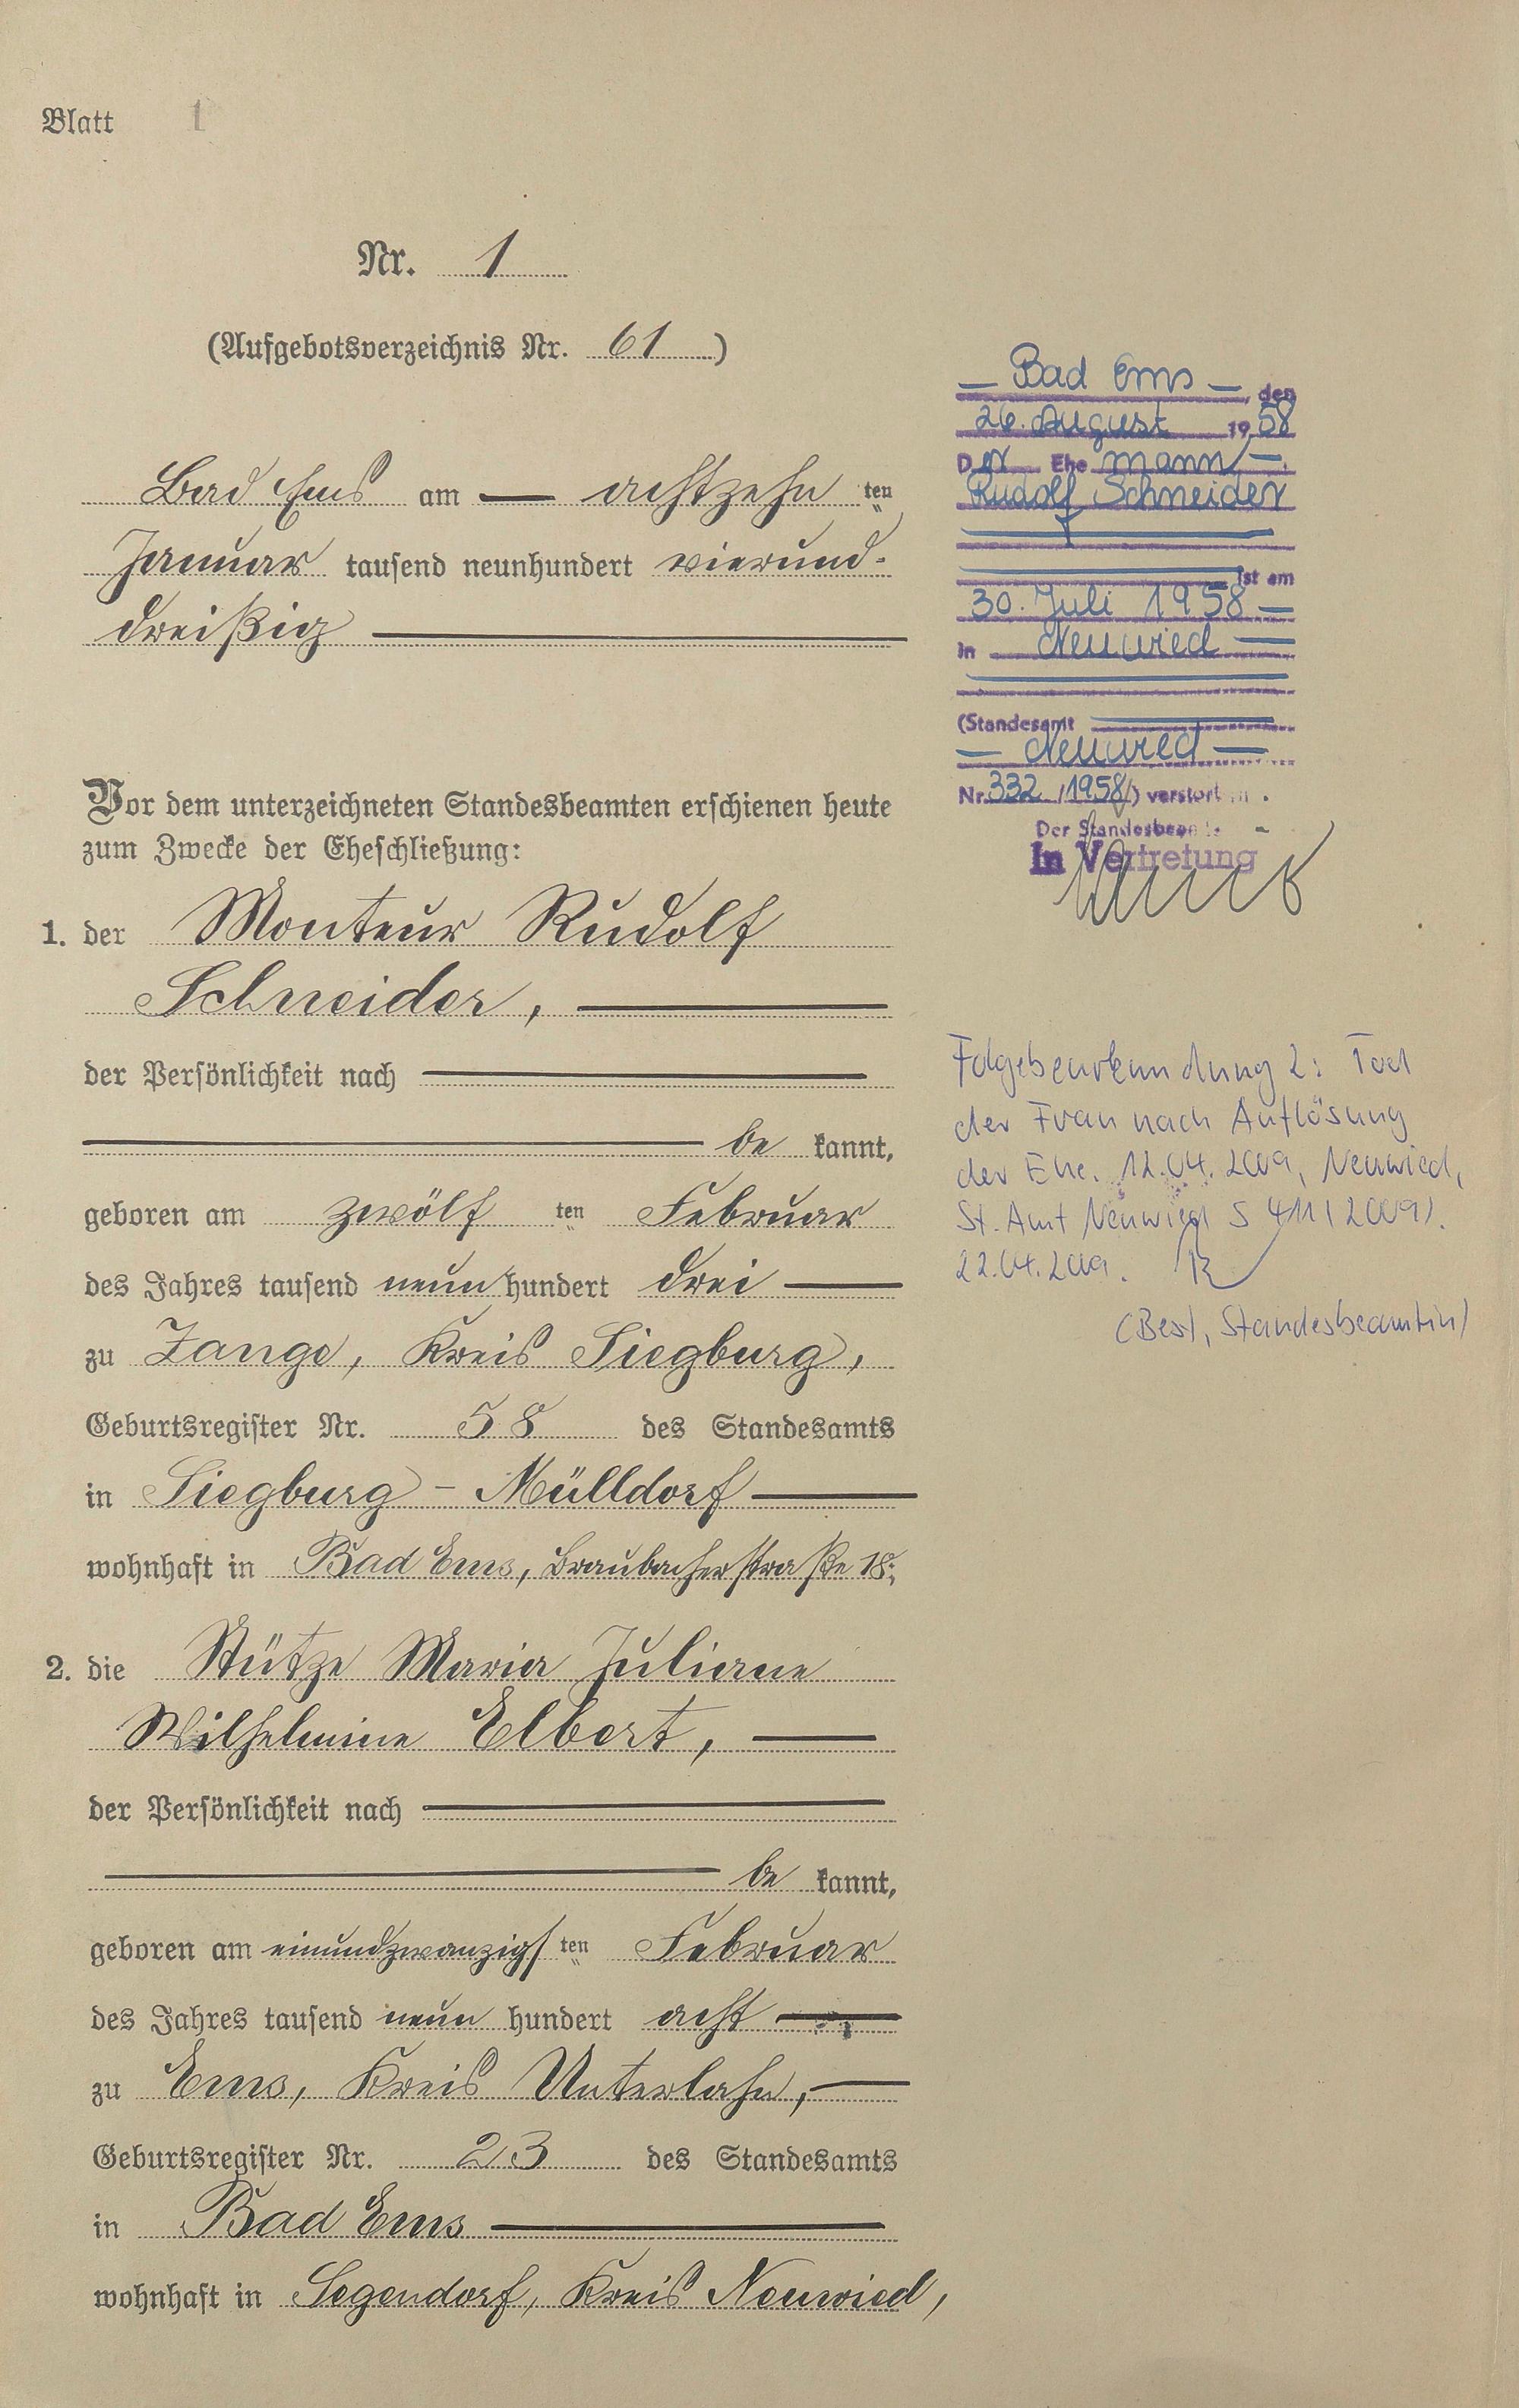 Blatt 1
Nr. 1
(Aufgebotsverzeichnis Nr. 61)
Bad Ems am — achtzehn ten
Januar tausend neunhundert vierund-
dreißig
Vor dem unterzeichneten Standesbeamten erschienen heute
zum Zwecke der Eheschließung:
1. der Monteur Rudolf
Schneider,
der Persönlichkeit nach
be kannt,
geboren am zwölf ten Februar
des Jahres tausend neun hundert drei
zu Zange, Kreis Siegburg,
Geburtsregister Nr. 58 des Standesamts
in Siegburg - Mülldorf
wohnhaft in Bad Ems, Braubacherstraße 18;
2. die Stütze Maria Juliane
Wilhelmine Elbert,
der Persönlichkeit nach
be kannt,
geboren am einundzwanzigs ten Februar
des Jahres tausend neun hundert acht
zu Ems, Kreis Unterlahn,
Geburtsregister Nr. 23 des Standesamts
in Bad Ems
wohnhaft in Segendorf, Kreis Neuwied,
— Bad Ems —, den
26. August 1958
Der Ehe mann —
Rudolf Schneider
ist am
30. Juli 1958 —
in — Neuwied
(Standesamt
— Neuwied —
Nr. 332 /1958/) verstorben.
Der Standesbeamte
In Vertretung
Folgebeurkundung 2: Tod
der Frau nach Auflösung
der Ehe. 12.04.2009, Neuwied,
St. Amt Neuwied S 411/2009).
22.04.2009.
(Best, Standesbeamtin)